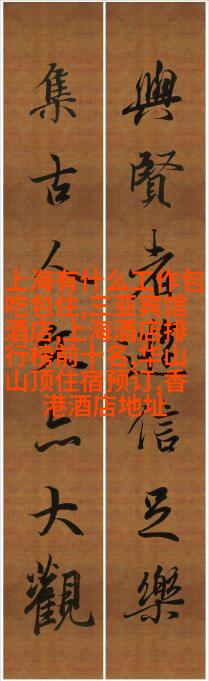 與賢者遊信足樂
集古人文亦大觀
上海有什么工作包
吃包住,三亚宾馆
酒店,上海酒店排
行榜前十名,华山
山顶住宿预订,香
港酒店地址